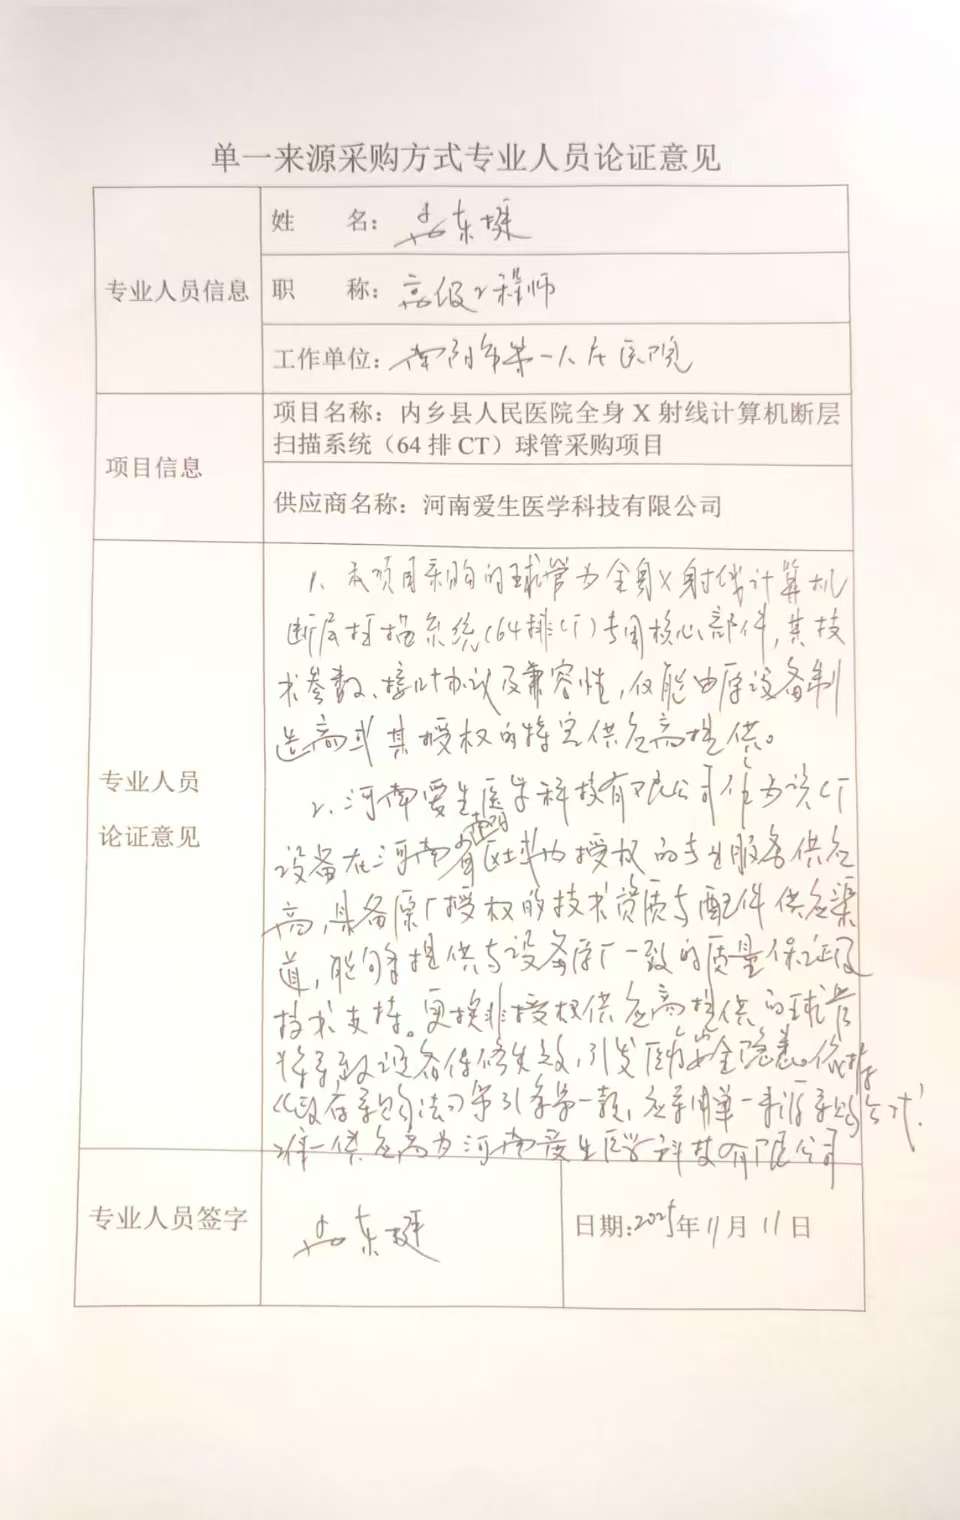 单一来源采购方式专业人员论证意见
专业人员信息
姓 名: 东
职 称: 高级工程师
工作单位: 南阳市第一人民医院
项目信息
项目名称: 内乡县人民医院全身 X 射线计算机断层
扫描系统（64 排 CT）球管采购项目
供应商名称: 河南爱生医学科技有限公司
专业人员
论证意见
1、本项目采购的球管为全身X射线计算机
断层扫描系统(64排CT)专用核心部件,其技
术参数、接口协议及兼容性,仅能由原设备制
造商或其授权的特定供应商提供。
2、河南爱生医学科技有限公司作为该CT
设备在河南省南阳区域内授权的专业服务供应
商,具备原厂授权的技术资质与配件供应渠
道,能够提供与设备原厂一致的质量保证及
技术支持。更换非授权供应商提供的球管
将导致设备保修失效,引发医疗安全隐患。依据
《政府采购法》第31条第一款,应采用单一来源采购方式!
唯一供应商为河南爱生医学科技有限公司
专业人员签字
东
日期:2025年11月11日